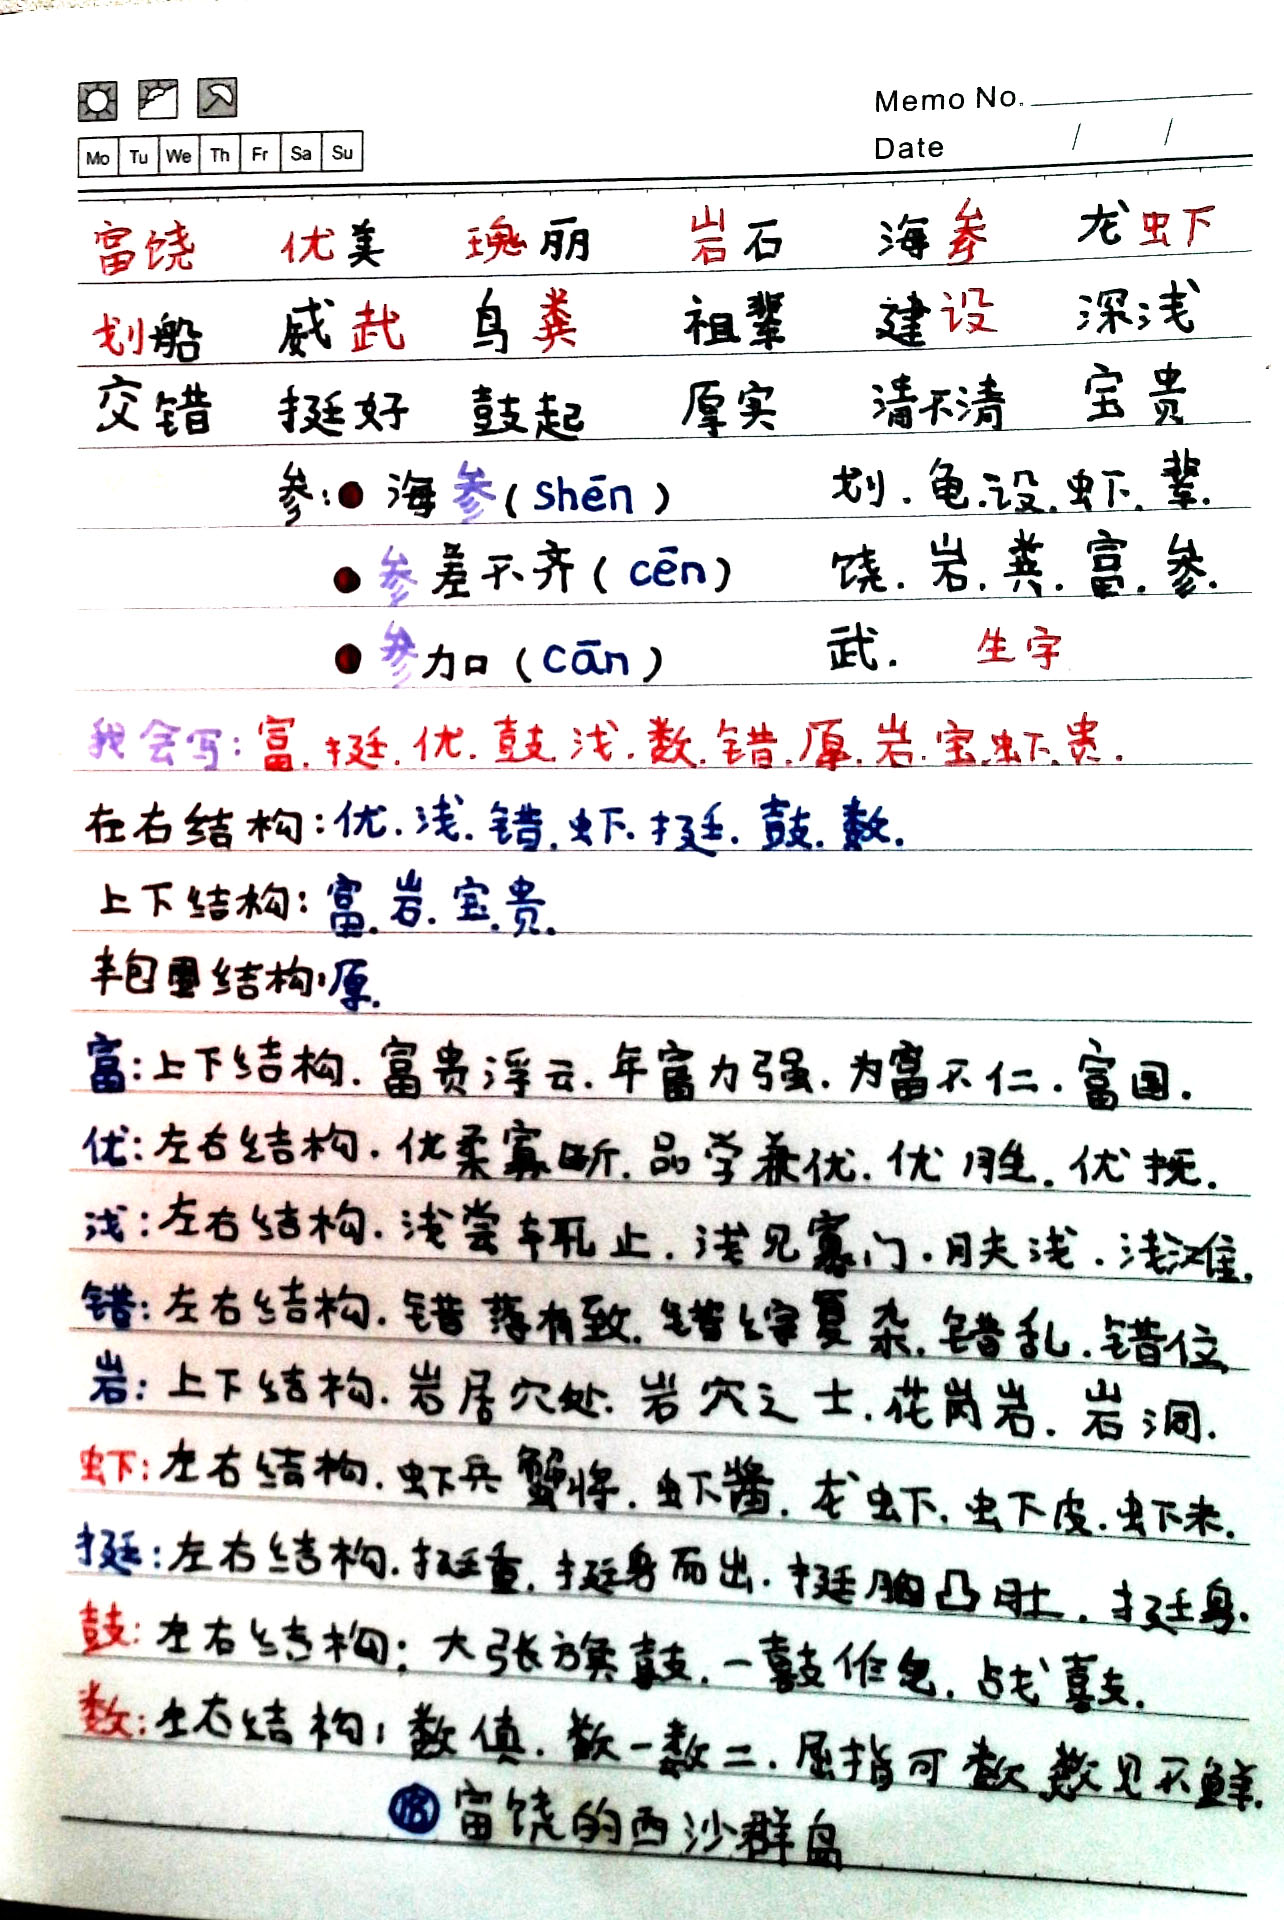 Memo No.
Mo Tu We Th Fr Sa Su
Date / /
富饶 优美 瑰丽 岩石 海参 龙虾
划船 威武 鸟粪 祖辈 建设 深浅
交错 挺好 鼓起 厚实 清不清 宝贵
参:● 海参(shēn) 划.龟.设.虾.辈.
● 参差不齐(cēn) 饶.岩.粪.富.参.
● 参加(cān) 武. 生字
我会写:富.挺.优.鼓.浅.数.错.厚.岩.宝.虾.贵.
在右结构:优.浅.错.虾.挺.鼓.数.
上下结构:富.岩.宝.贵.
半包围结构:厚.
富:上下结构.富贵浮云.年富力强.为富不仁.富国.
优:左右结构.优柔寡断.品学兼优.优胜.优抚.
浅:左右结构.浅尝辄止.浅见寡门.肤浅.浅滩.
错:左右结构.错落有致.错综复杂.错乱.错位
岩:上下结构.岩居穴处.岩穴之士.花岗岩.岩洞.
虾:左右结构.虾兵蟹将.虾酱.龙虾.虾皮.虾米.
挺:左右结构.挺重.挺身而出.挺胸凸肚.挺身.
鼓:左右结构:大张旗鼓.一鼓作气.战鼓.
数:左右结构:数值.数一数二.屈指可数 数见不鲜.
⑱富饶的西沙群岛